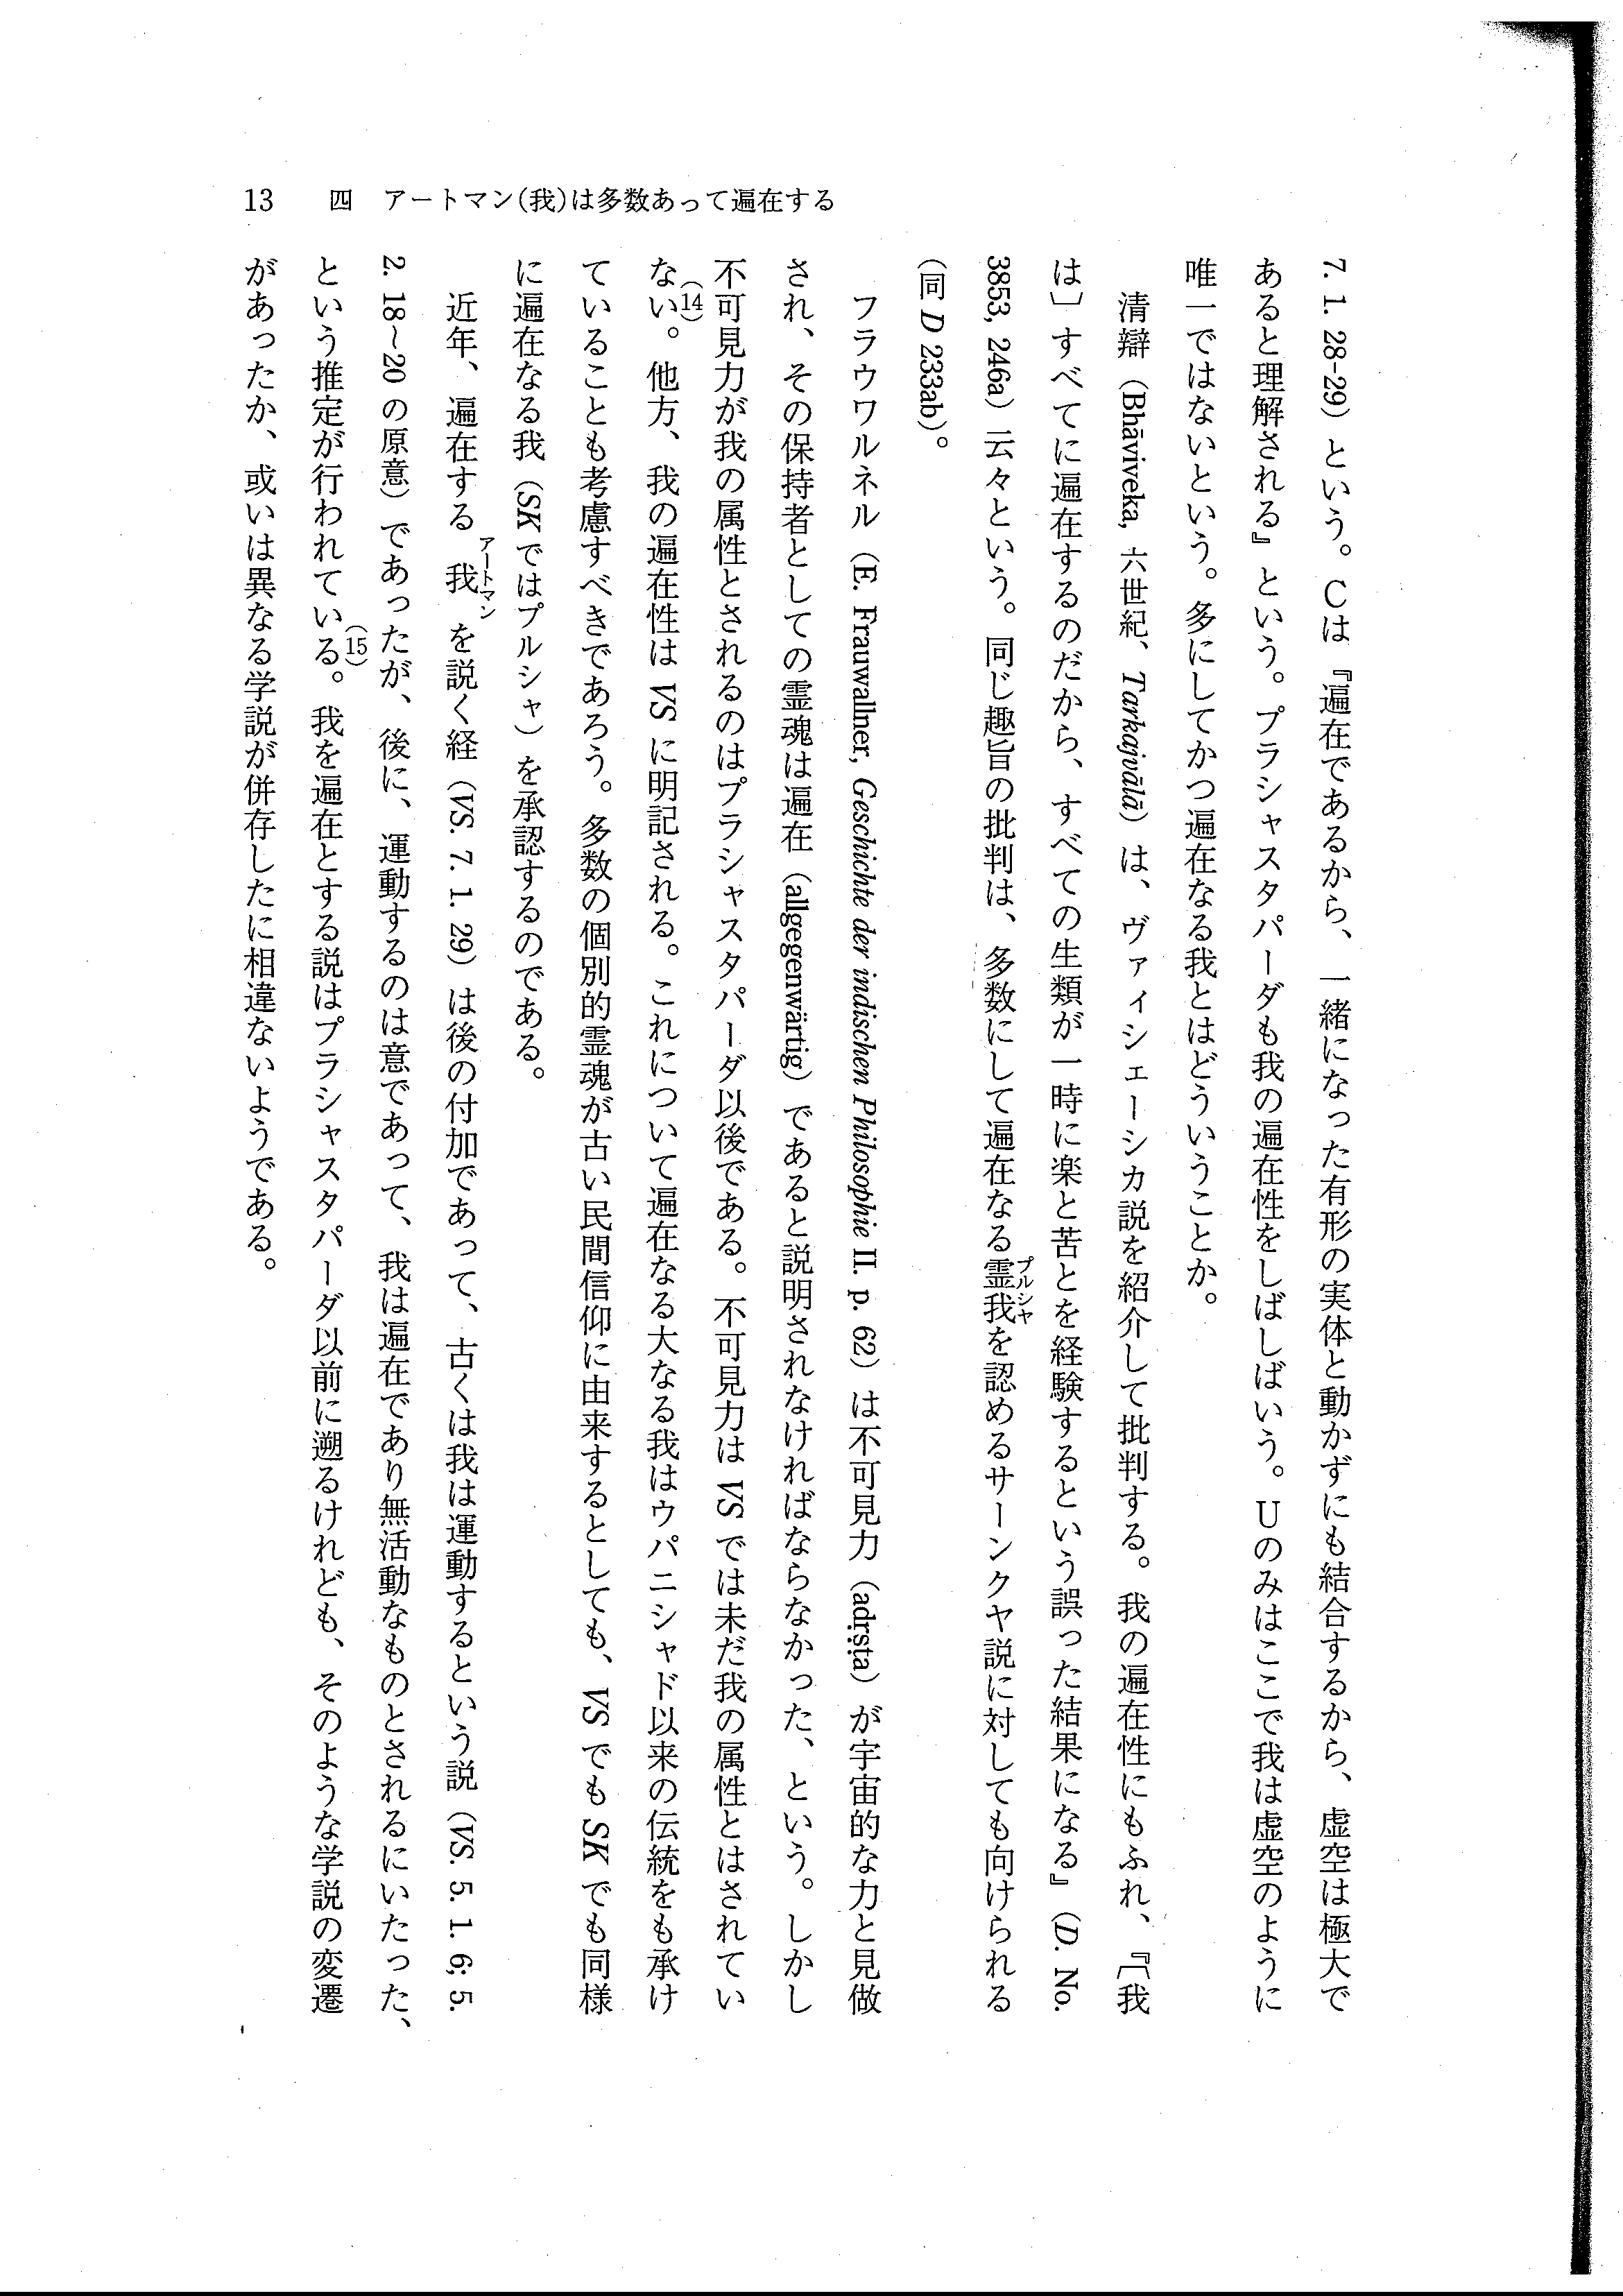 13　四　アートマン(我)は多数あって遍在する
7. 1. 28-29）という。Cは『遍在であるから、一緒になった有形の実体と動かずにも結合するから、虚空は極大で
あると理解される』という。プラシャスタパーダも我の遍在性をしばしばいう。Uのみはここで我は虚空のように
唯一ではないという。多にしてかつ遍在なる我とはどういうことか。
　清辯（Bhāviveka, 六世紀、Tarkajvālā）は、ヴァイシェーシカ説を紹介して批判する。我の遍在性にもふれ、『〔我
は〕すべてに遍在するのだから、すべての生類が一時に楽と苦とを経験するという誤った結果になる』（D. No.
3853, 246a）云々という。同じ趣旨の批判は、多数にして遍在なる霊我プルシャを認めるサーンクヤ説に対しても向けられる
（同 D 233ab）。
　フラウワルネル（E. Frauwallner, Geschichte der indischen Philosophie II. p. 62）は不可見力（adṛṣṭa）が宇宙的な力と見做
され、その保持者としての霊魂は遍在（allgegenwärtig）であると説明されなければならなかった、という。しかし
不可見力が我の属性とされるのはプラシャスタパーダ以後である。不可見力は VS では未だ我の属性とはされてい
ない(14)。他方、我の遍在性は VS に明記される。これについて遍在なる大なる我はウパニシャド以来の伝統をも承け
ていることも考慮すべきであろう。多数の個別的霊魂が古い民間信仰に由来するとしても、VS でも SK でも同様
に遍在なる我（SK ではプルシャ）を承認するのである。
　近年、遍在する我アートマンを説く経（VS. 7. 1. 29）は後の付加であって、古くは我は運動するという説（VS. 5. 1. 6; 5.
2. 18~20 の原意）であったが、後に、運動するのは意であって、我は遍在であり無活動なものとされるにいたった、
という推定が行われている(15)。我を遍在とする説はプラシャスタパーダ以前に遡るけれども、そのような学説の変遷
があったか、或いは異なる学説が併存したに相違ないようである。